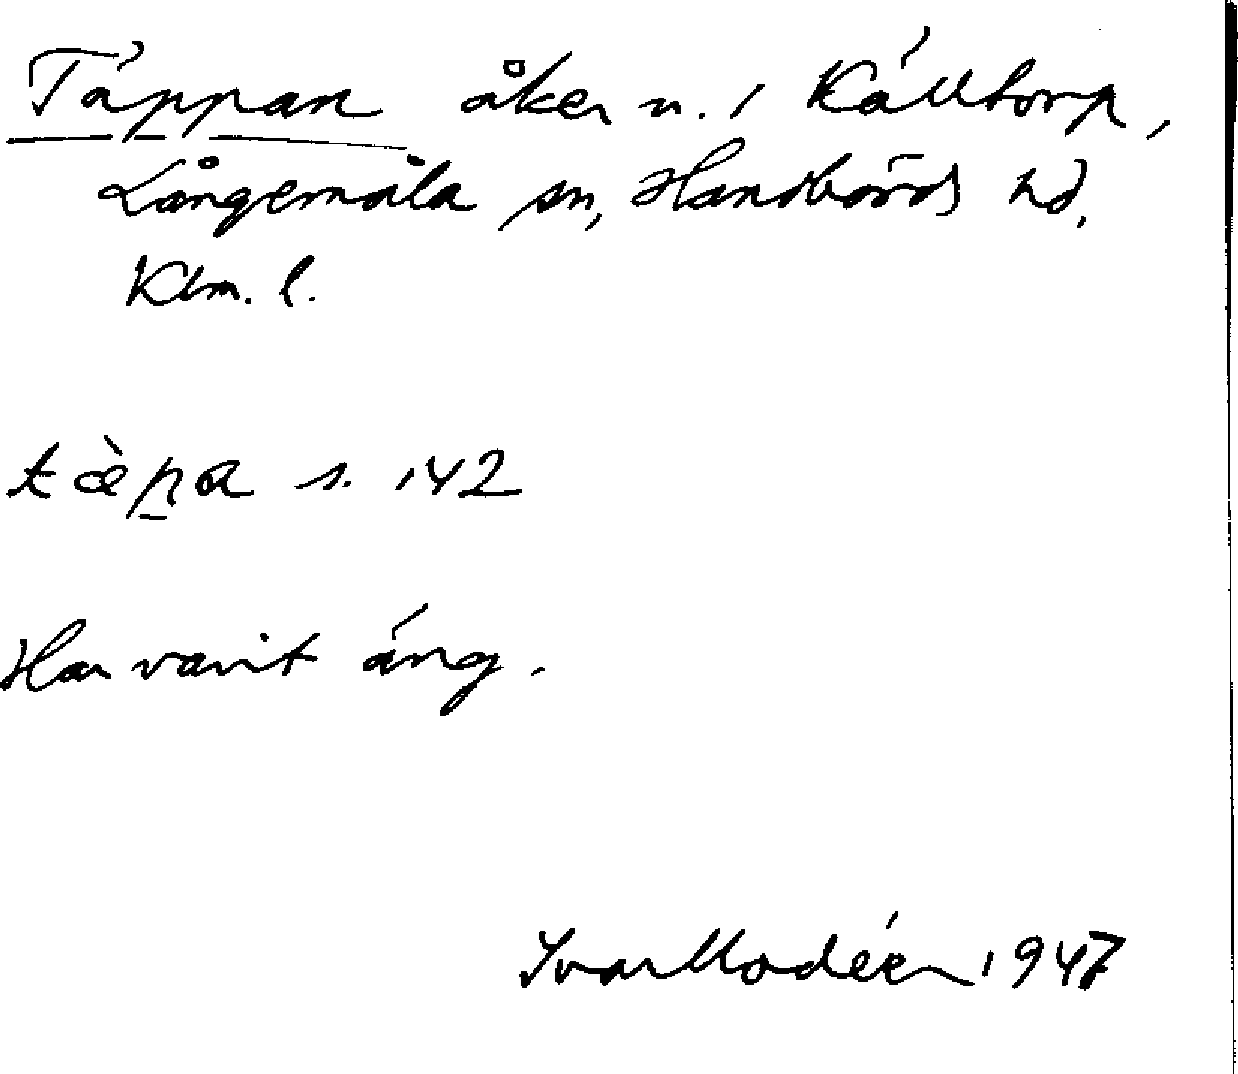 Täppan åker n. i Källtorp,
Långemåla sn, Handbörds hd,
Klm. l.
tæ̀pa s. 142
Har varit äng.
Ivar Modéer 1947